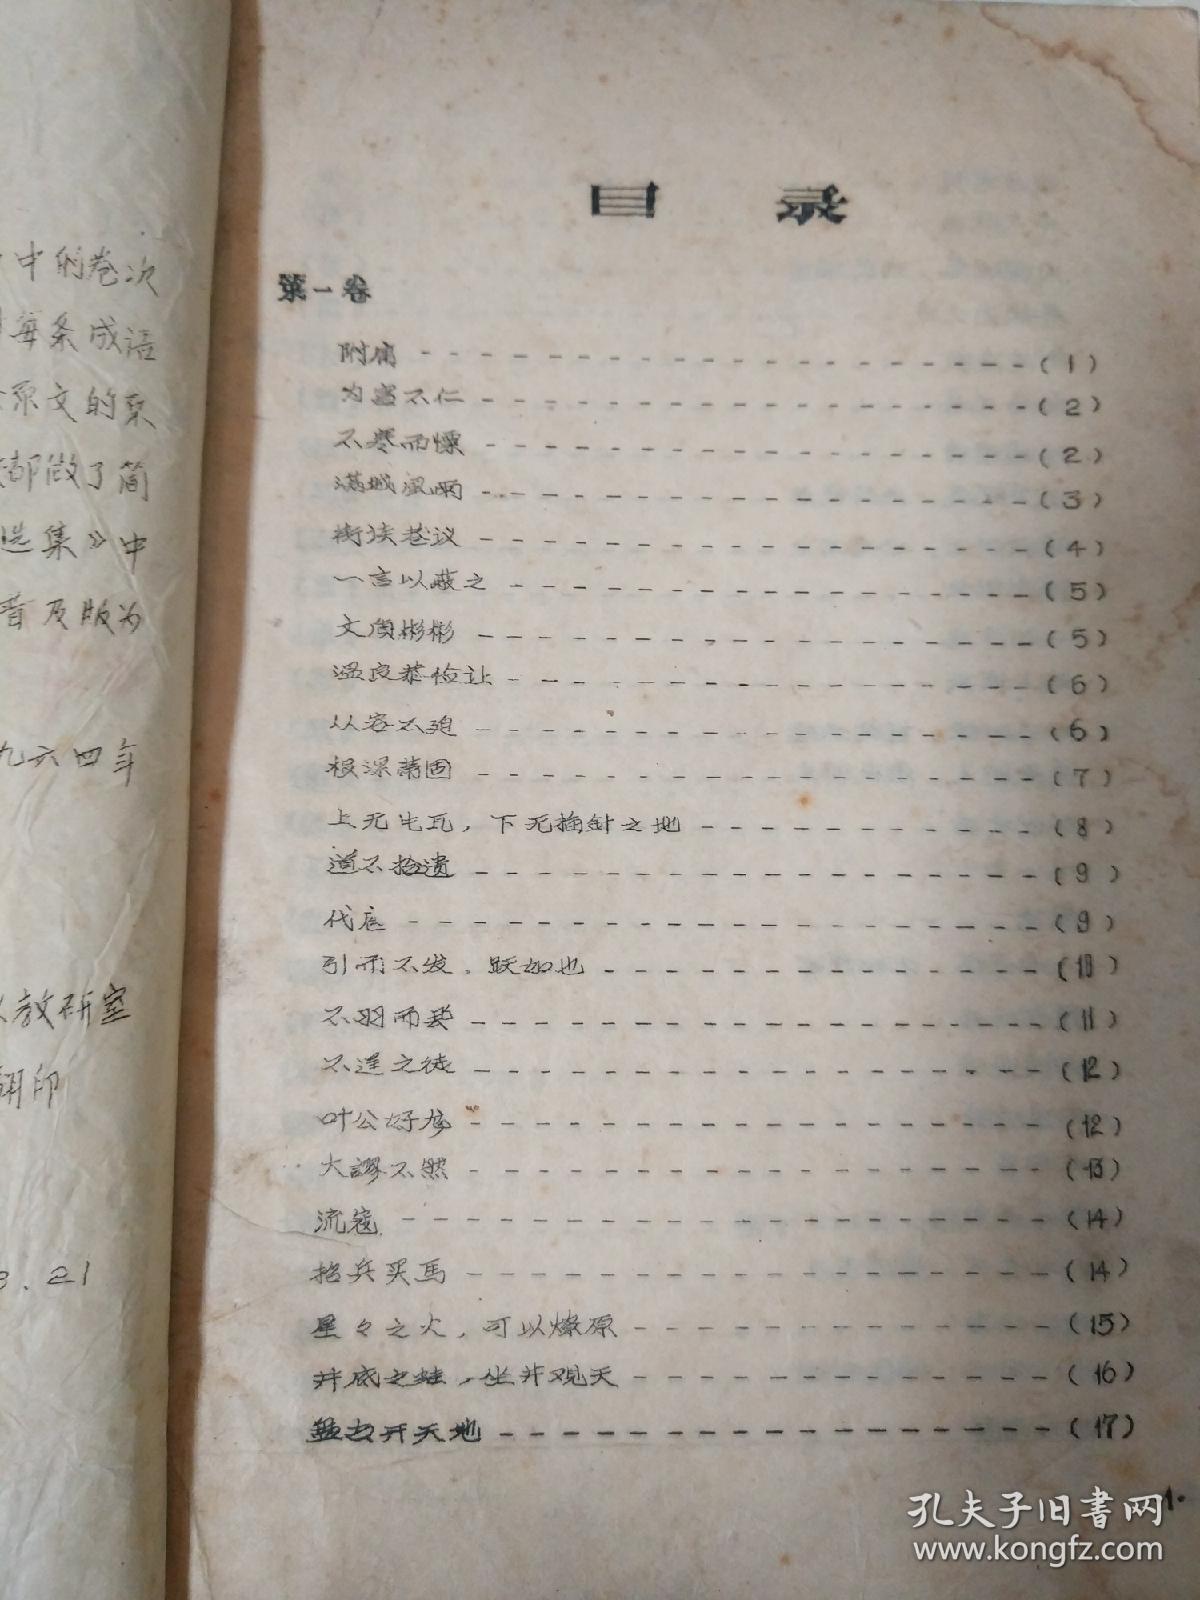 中的卷次
每条成语
原文的页
都做了简
选集》中
普及版为
九六四年
教研室
翻印
3.21
目 录
第一卷
附庸 (1)
为富不仁 (2)
不寒而慄 (2)
满城风雨 (3)
街谈巷议 (4)
一言以蔽之 (5)
文质彬彬 (5)
温良恭俭让 (6)
从容不迫 (6)
根深蒂固 (7)
上无片瓦，下无插针之地 (8)
道不拾遗 (9)
代庖 (9)
引而不发，跃如也 (10)
不翼而飞 (11)
不逞之徒 (12)
叶公好龙 (12)
大谬不然 (13)
流寇 (14)
招兵买馬 (14)
星々之火，可以燎原 (15)
井底之蛙，坐井观天 (16)
盘古开天地 (17)
1.
孔夫子旧書网
www.kongfz.com